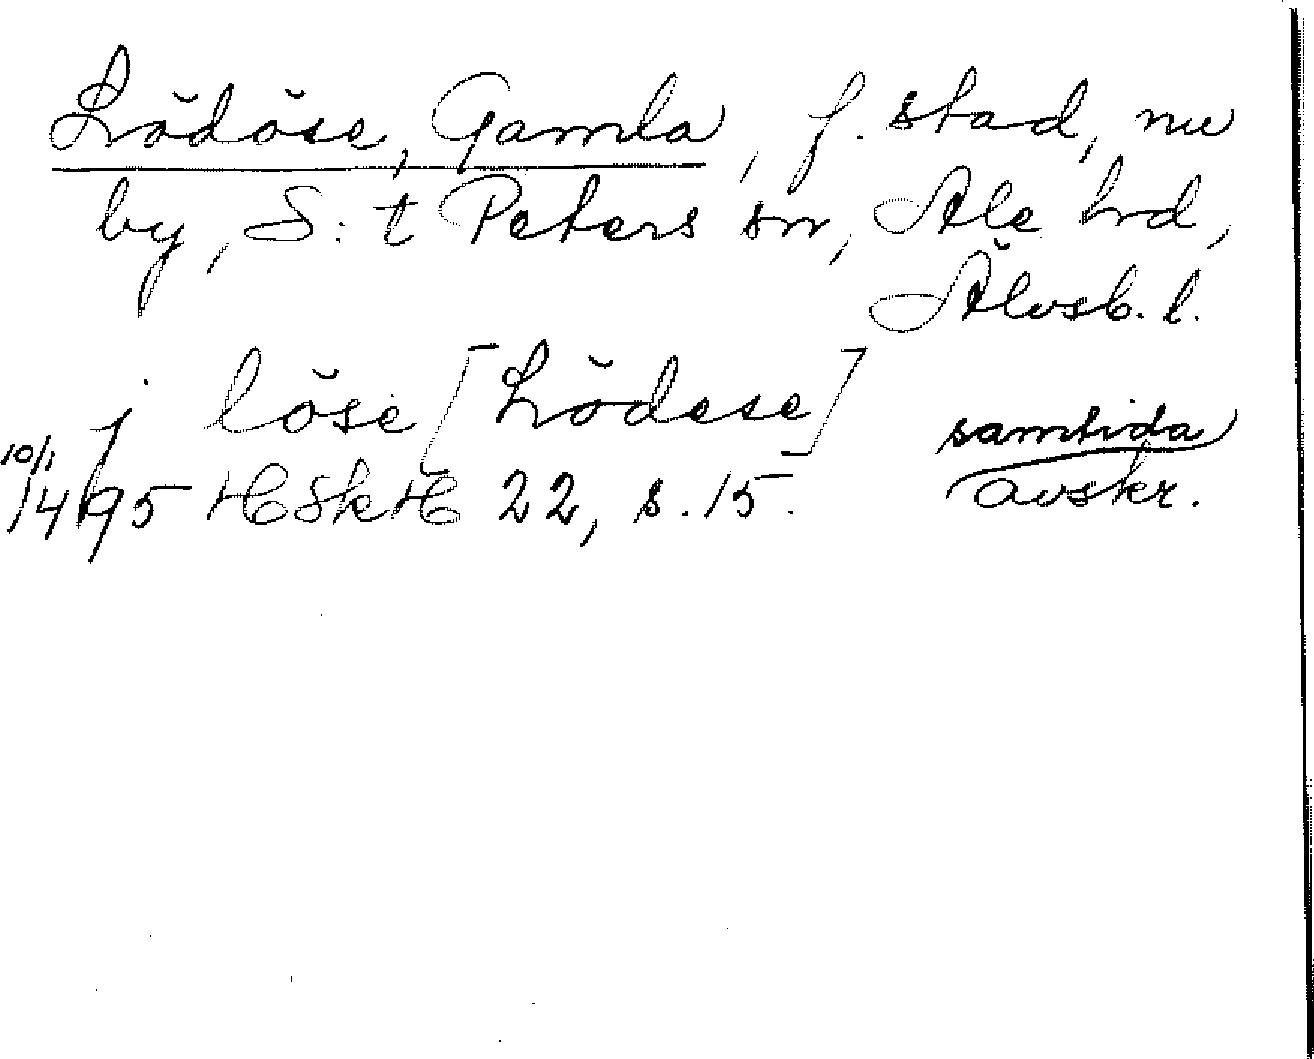 Lödöse, Gamla, f. stad, nu
by, S:t Peters sn, Ale hd,
Älvsb. l.
j löse [Lödese]
samtida
10/1 1495 HSkH 22, s. 15.
avskr.